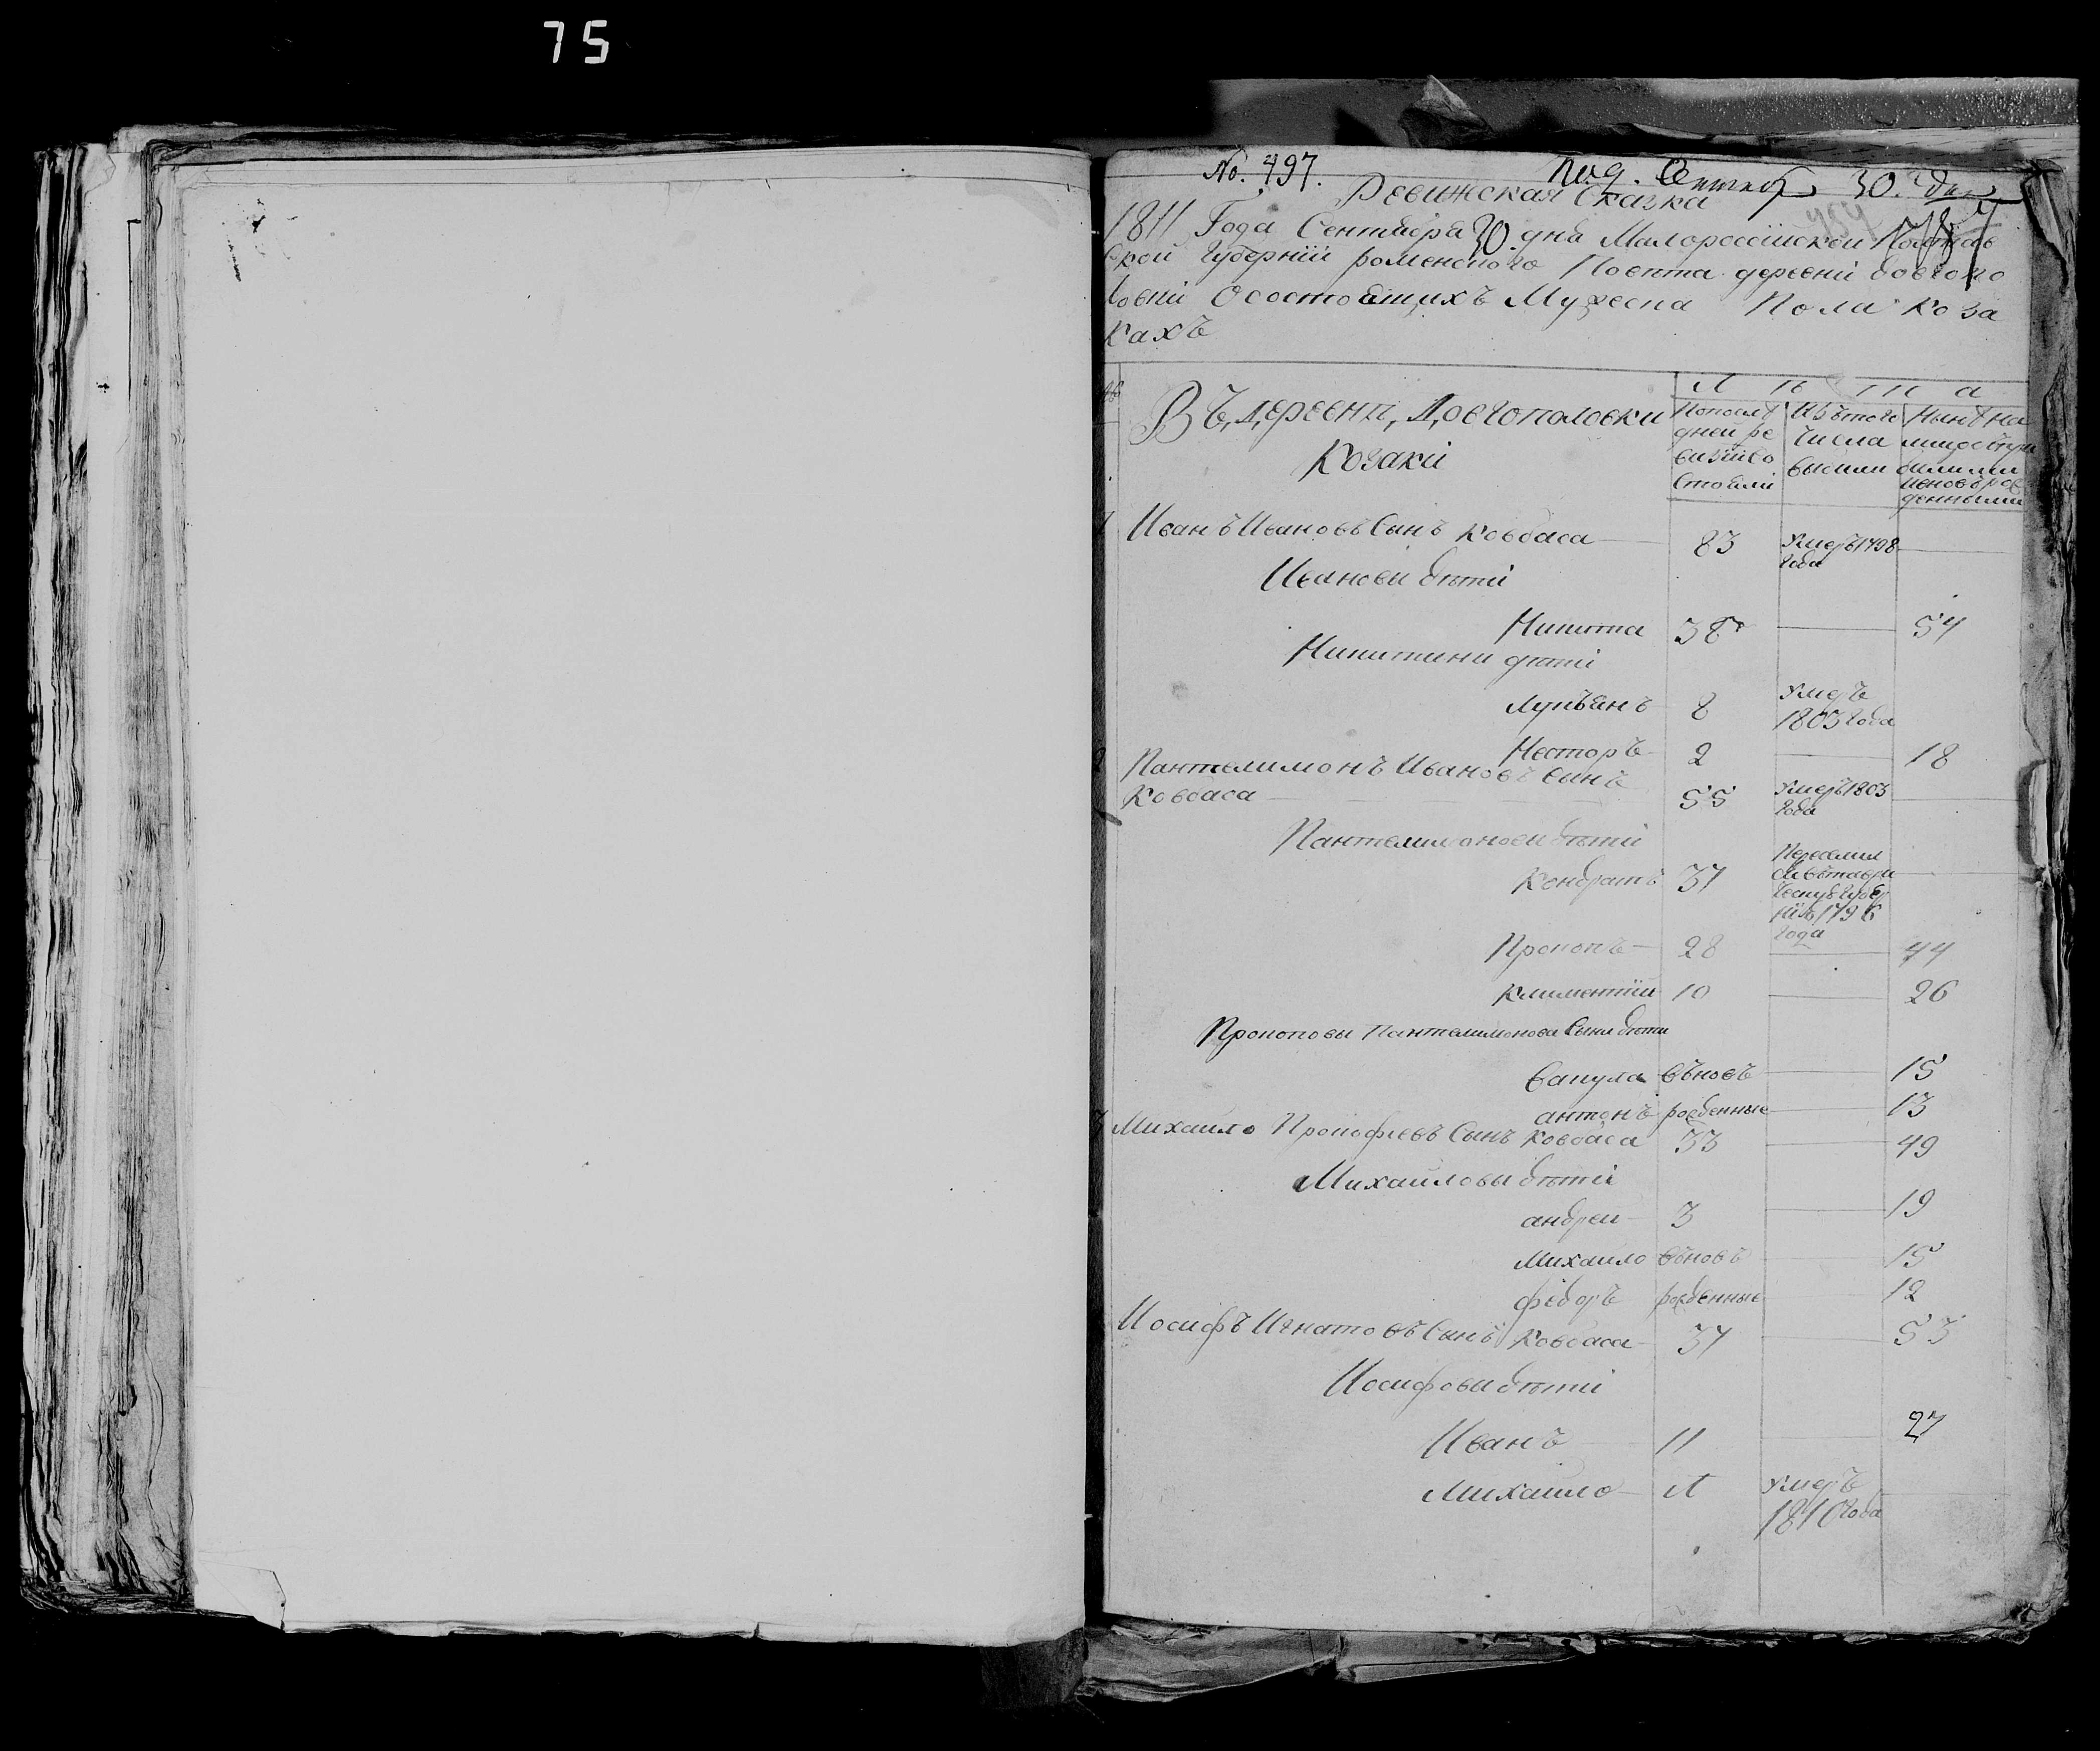 75
No. 497.
Под. Октября 30. дня
Ревижская Сказка
454
1811 Года Сентября 30. дня Малороссiйской Полтав
ской Губернiи роменского Повѣта деревнi довгопо
ловки О состоящихъ Мужеска Пола Коза
кахъ
Лѣта
Въ деревни, довгополовки
Козакiи
По послѣ
дней ре
визiи со
стояли
Изъ того
числа
выбыли
Нынѣ на
лицо
новорож
денными
1 Иванъ Ивановъ Сынъ Ковбаса 83 Умеръ 1798 Года
Иванови дѣти
Никита 38 54
Никитини дѣти
Лукьянъ 8 Умеръ 1803 Года
Несторъ 2 18
2 Пантелимонъ Ивановъ Синъ
Ковбаса 55 Умеръ 1803 Года
Пантелимонови дѣти
Кондратъ 37 Переселил
ся въ Таври
ческую Губер
нiю 1796
Года
Прокопъ 28 44
Климентiи 10 26
Прокоповы Пантелимонова Сына дѣти
Вакула вновъ 15
антонъ рожденные 13
3 Михаило Прокофiевъ Сынъ Ковбаса 33 49
Михаиловы дѣти
андреи 3 19
Михаило вновъ 15
федоръ рожденные 12
Иосифъ Игнатовъ Сынъ Ковбаса 37 53
Иосифови дѣти
Иванъ 11 27
Михаило Л Умеръ
1810 Года